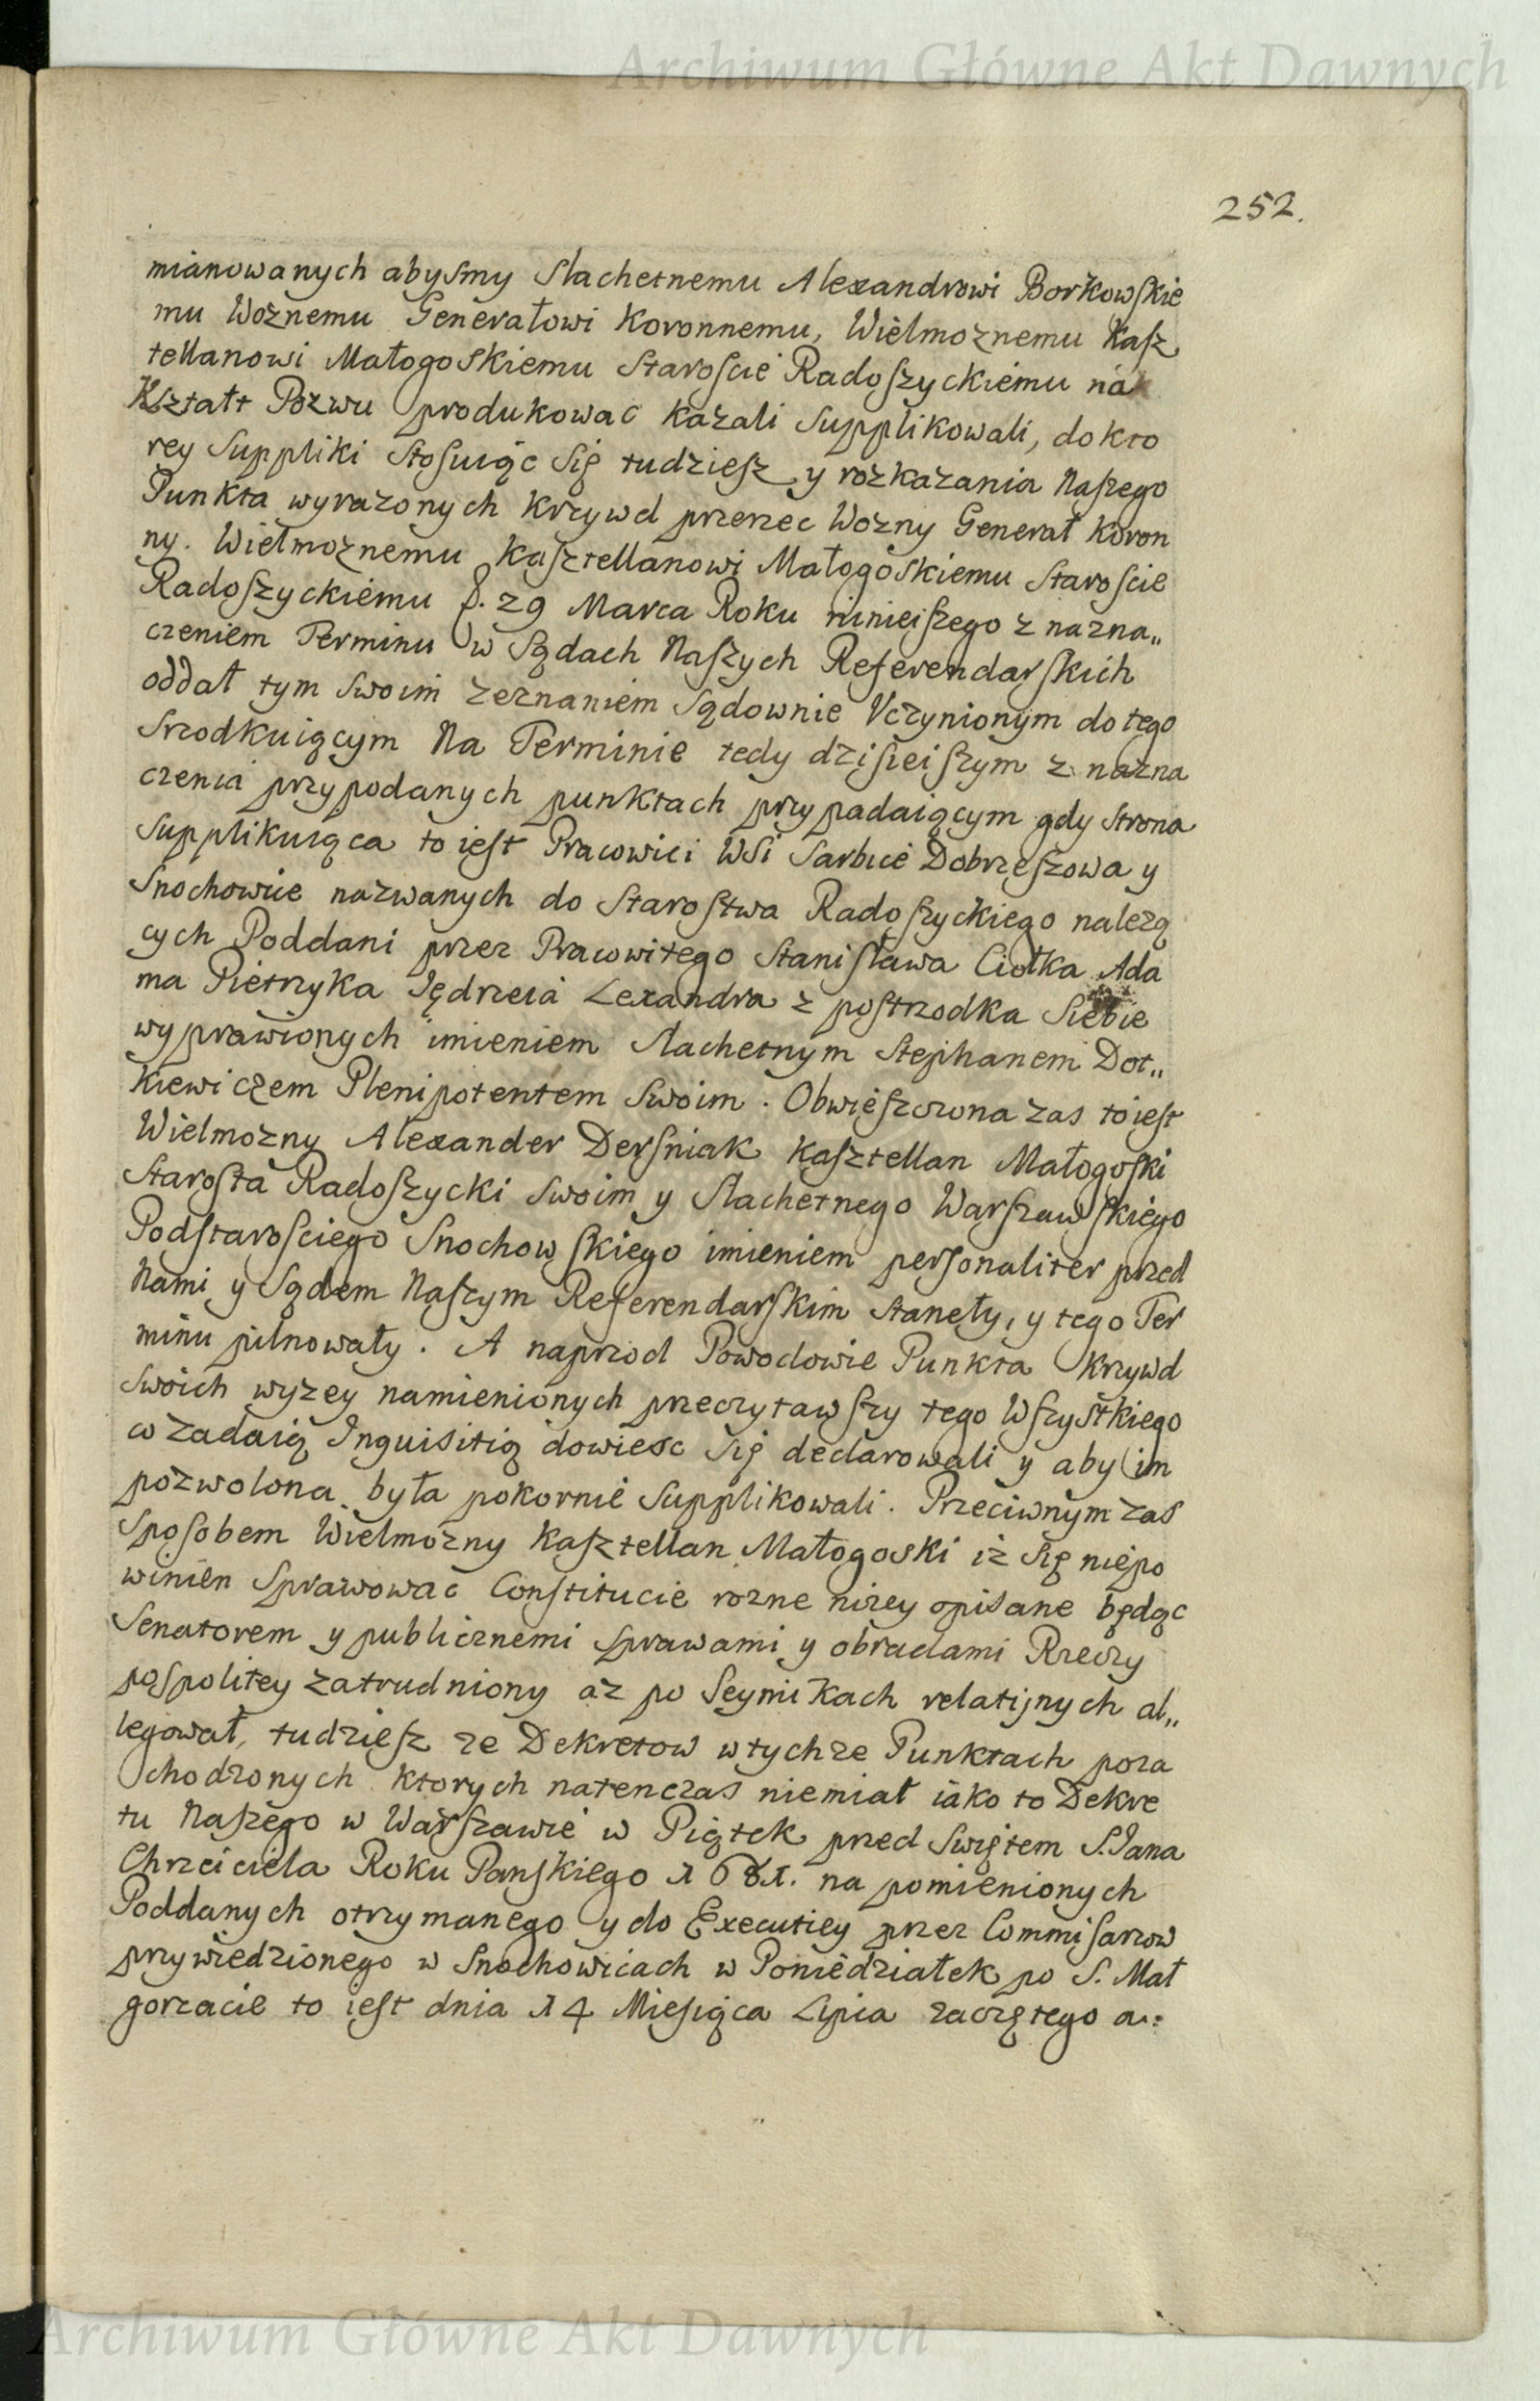 Archiwum Główne Akt Dawnych
252.
mianowanych abysmy Slachetnemu Alexandrowi Borkowskie
mu Woznemu Generałowi Koronnemu, Wielmoznemu Kasz
tellanowi Małogoskiemu Staroscie Radoszyckiemu na
Kształt Pozwu produkowac kazali supplikowali, do kto
rey Suppliki stosuiąc się tudziesz y rozkazania Naszego
Punkta wyrazonych Krzywd przerzec Wozny Generał Koron
ny. Wielmoznemu Kasztellanowi Małogoskiemu Staroscie
Radoszyckiemu d. 29 Marca Roku ninieiszego z nazna„
czeniem Terminu w Sądach Naszych Referendarskich
oddał tym swoim zeznaniem Sądownie Vczynionym do tego
srzodkuiącym Na Terminie tedy dzisieiszym z nazna
czenia przy podanych punktach przypadaiącym gdy strona
supplikuiąca to iest Pracowici Wsi Sarbice Dobrzeszowa y
Snochowice nazwanych do Starostwa Radoszyckiego nalezą
cych Poddani przez Pracowitego Stanisława Ciołka Ada
ma Pietrzyka Jędrzeia Lexandra z postrzodka Siebie
wyprawionych imieniem Slachetnym Stephanem Dot„
kiewiczem Plenipotentem swoim. Obwieszczona zas to iest
Wielmozny Alexander Dersniak Kasztellan Małogoski
Starosta Radoszycki swoim y Slachetnego Warszawskiego
Podstarosciego Snochowskiego imieniem personaliter przed
Nami y Sądem Naszym Referendarskim staneły, y tego Ter
minu pilnowały. A naprzod Powodowie Punkta Krzywd
swoich wyzey namienionych przeczytawszy tego Wszystkiego
co zadaią Inquisitią dowiesc się declarowali y aby im
pozwolona była pokornie supplikowali. Przeciwnym zas
sposobem Wielmozny Kasztellan Małogoski iz się niepo
winien sprawowac Constitucie rozne nizey opisane będąc
Senatorem y publicznemi sprawami y obradami Rzeczy
pospolitey zatrudniony az po Seymikach relatijnych al„
legował, tudziesz ze Dekretow w tychze Punktach poza
chodzonych ktorych natenczas niemiał iako to Dekre
tu Naszego w Warszawie w Piątek przed Swiętem S. Jana
Chrzciciela Roku Panskiego 1681. na pomienionych
Poddanych otrzymanego y do Executiey przez Commisarzow
przywiedzionego w Snochowicach w Poniedziałek po S. Mał
gorzacie to iest dnia 14 Miesiąca Lipia zaczętego a„
Archiwum Główne Akt Dawnych